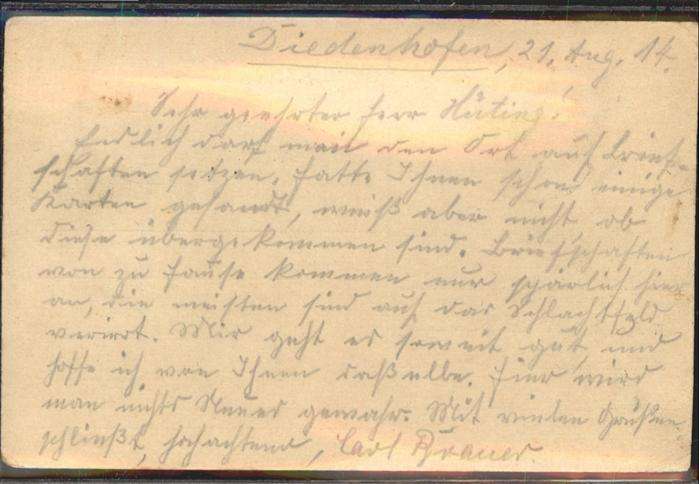 Diedenhofen, 21. Aug. 14.
Sehr geehrter Herr Hüting!
Endlich darf man den Ort auf Brief-
schaften setzen. Hatte Ihnen schon einige
Karten gesandt, weiß aber nicht, ob
diese übergekommen sind. Briefschaften
von zu Hause kommen nur spärlich hier
an, die meisten sind auf das Schlachtfeld
verirrt. Mir geht es soweit gut und
hoffe ich von Ihnen daßselbe. Hier wird
man nichts Neues gewahr. Mit vielen Grüßen
schließt, hochachtend, Carl Brauer.